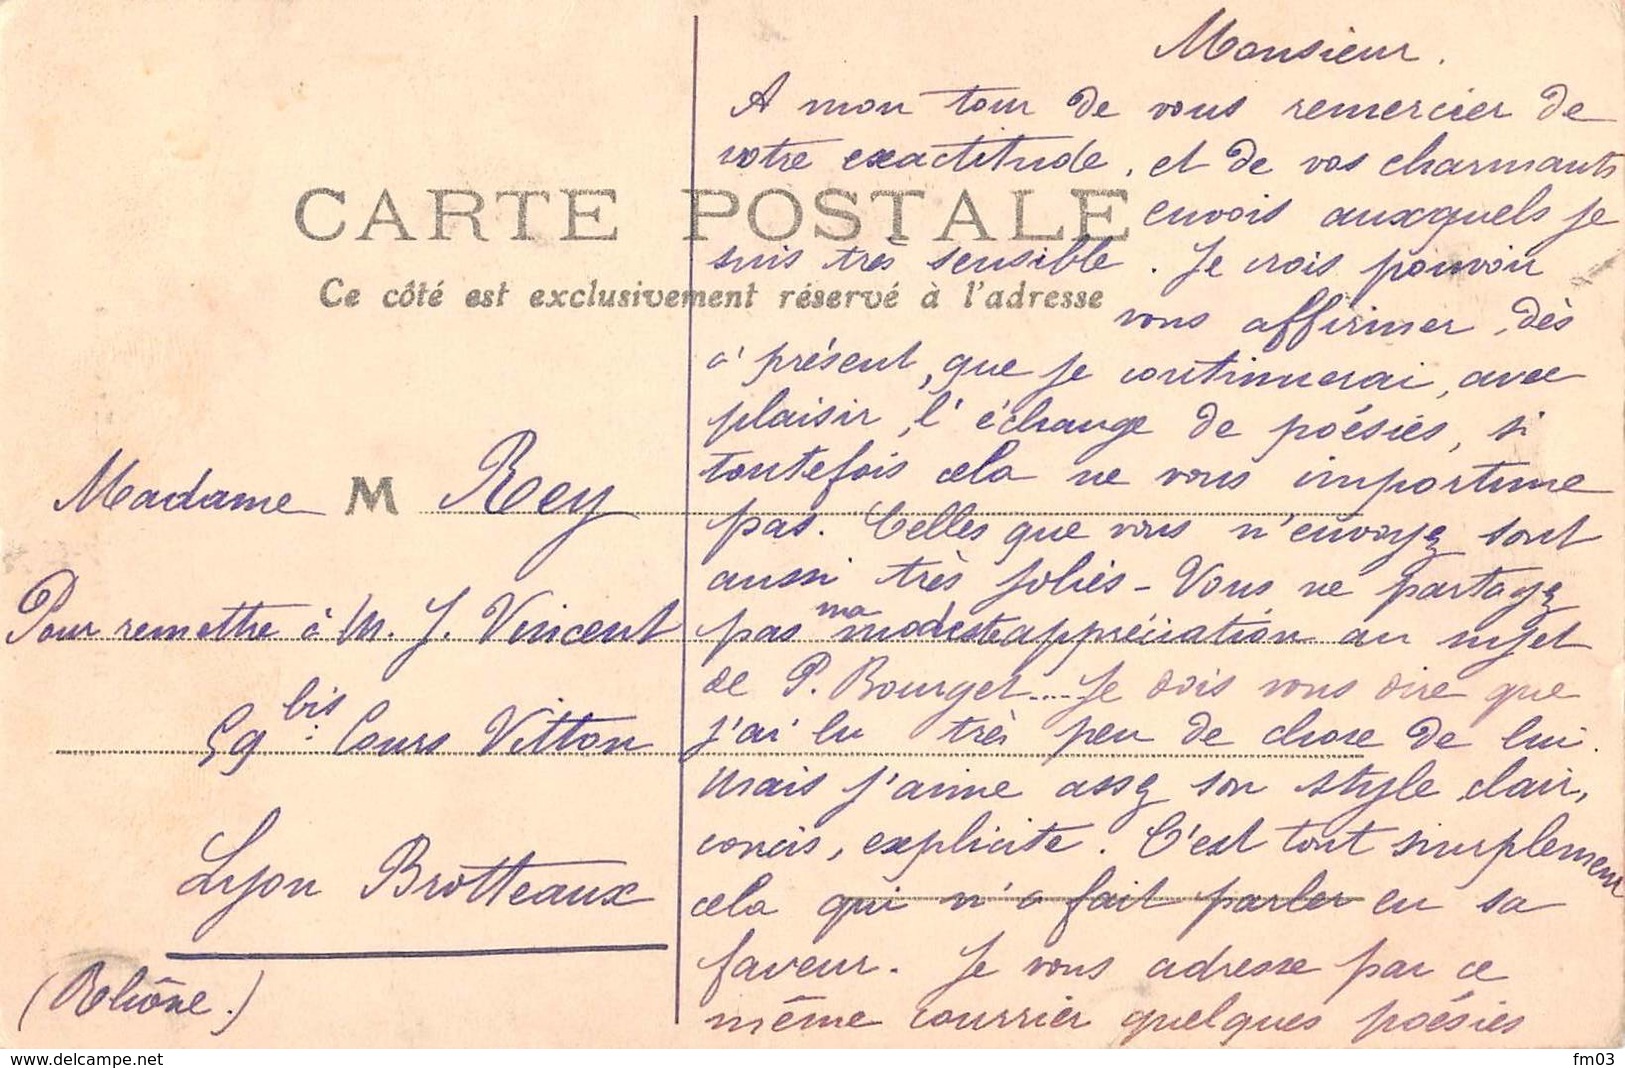 CARTE POSTALE
Ce côté est exclusivement réservé à l'adresse
Madame M Rey
Pour remettre à M. J. Vincent
59 bis Cours Vitton
Lyon Brotteaux
(Rhône.)
Monsieur.
A mon tour de vous remercier de
votre exactitude, et de vos charmants
envois auxquels je
suis très sensible. Je crois pouvoir
vous affirmer, dès
à présent, que je continuerai, avec
plaisir, l'échange de poésies, si
toutefois cela ne vous importune
pas. Celles que vous m'envoyez sont
aussi très jolies - Vous ne partagez
pas ma modeste appréciation au sujet
de P. Bourget.... Je dois vous dire que
j'ai lu très peu de chose de lui.
Mais j'aime assez son style clair,
concis, explicite. C'est tout simplement
cela qui m'a fait parler en sa
faveur. Je vous adresse par ce
même courrier quelques poésies
delcampe.net
fm03